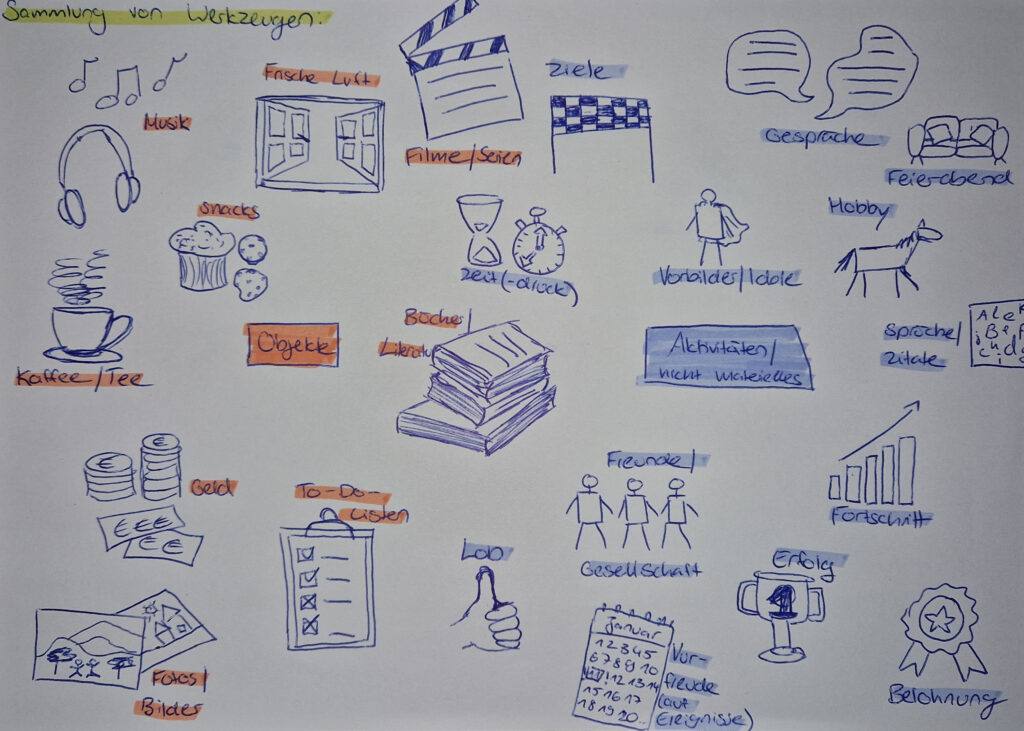 Sammlung von Werkzeugen:
Musik
Frische Luft
Filme/Serien
Ziele
Gespräche
Feierabend
Snacks
Zeit(-druck)
Vorbilder/Idole
Hobby
Kaffee/Tee
Objekte
Bücher/
Literatur
Aktivitäten/
nicht materielles
Sprüche/
Zitate
Geld
€
€
€€€
€€
To-Do-
Listen
Lob
Freunde/
Gesellschaft
Fortschritt
Erfolg
1
Fotos/
Bilder
Januar
1 2 3 4 5
6 7 8 9 10
12 13 14
15 16 17
18 19 20..
Vor-
freude
(auf
Ereignisse)
Belohnung